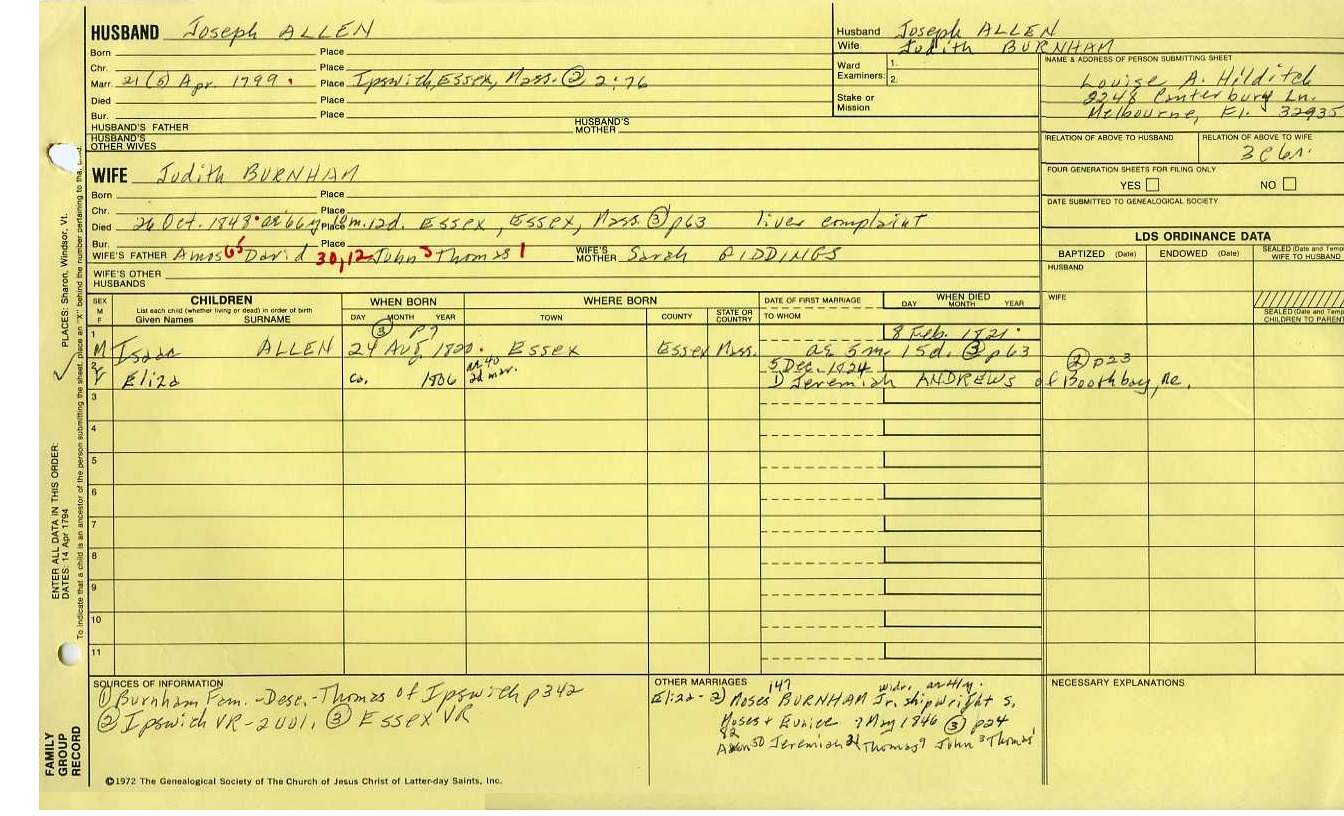 HUSBAND Joseph ALLEN
Born Place
Chr. Place
Marr. 21 (5) Apr. 1799. Place Ipswich, Essex, Mass. ② 2:76
Died Place
Bur. Place
HUSBAND'S FATHER HUSBAND'S MOTHER
HUSBAND'S OTHER WIVES
Husband Joseph ALLEN
Wife Judith BURNHAM
Ward Examiners: 1. 2.
Stake or Mission
NAME & ADDRESS OF PERSON SUBMITTING SHEET
Louise A. Hilditch
2248 Canterbury Ln.
Melbourne, Fl. 32935
RELATION OF ABOVE TO HUSBAND RELATION OF ABOVE TO WIFE
3c6r.
FOUR GENERATION SHEETS FOR FILING ONLY
YES NO
DATE SUBMITTED TO GENEALOGICAL SOCIETY
LDS ORDINANCE DATA
BAPTIZED (Date) ENDOWED (Date) SEALED (Date and Temp WIFE TO HUSBAND
HUSBAND
WIFE
SEALED (Date and Temp CHILDREN TO PARENT
WIFE Judith BURNHAM
Born Place
Chr. Place
Died 26 Oct. 1848. ae 66y 10m. 12d. Place Essex, Essex, Mass. ③ p63 liver complaint
Bur. Place
WIFE'S FATHER Amos 65 David 30,12 John 3 Thomas 1 WIFE'S MOTHER Sarah GIDDINGS
WIFE'S OTHER HUSBANDS
SEX M F CHILDREN WHEN BORN WHERE BORN DATE OF FIRST MARRIAGE WHEN DIED
List each child (whether living or dead) in order of birth
Given Names SURNAME DAY MONTH YEAR TOWN COUNTY STATE OR COUNTRY TO WHOM DAY MONTH YEAR
1 ③ p7 8 Feb. 1821.
M Isaac ALLEN 24 Aug 1820. Essex Essex Mass. ae 5m 15d. ③ p63
2 ae 40 2d mar. 5 Dec. 1824 ② p23
F Eliza ca. 1806 D Jeremiah ANDREWS of Boothbay, Me.
3
4
5
6
7
8
9
10
11
SOURCES OF INFORMATION
① Burnham Fam.-Desc.-Thomas of Ipswich p342
② Ipswich VR-2001. ③ Essex VR
OTHER MARRIAGES 147 widr. ae 41y.
Eliza- 2) Moses BURNHAM Jr. shipwright s.
Moses + Eunice 7 May 1846 ③ p24
82
50 Jeremiah 21 Thomas 9 John 3 Thomas 1
NECESSARY EXPLANATIONS
©1972 The Genealogical Society of The Church of Jesus Christ of Latter-day Saints, Inc.
FAMILY GROUP RECORD
ENTER ALL DATA IN THIS ORDER:
DATES: 14 Apr 1794
PLACES: Sharon, Windsor, Vt.
To indicate that a child is an ancestor of the person submitting the sheet, place an "X" behind the number pertaining to that